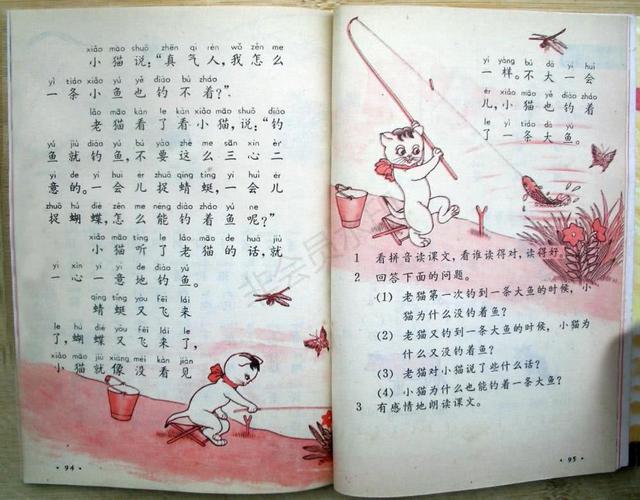 xiǎo māo shuō zhēn qì rén wǒ zěn me
小猫说:“真气人,我怎么
yì tiáo xiǎo yú yě diào bù zháo
一条小鱼也钓不着?”
lǎo māo kàn le kàn xiǎo māo shuō diào
老猫看了看小猫,说:“钓
yú jiù diào yú bú yào zhè me sān xīn èr
鱼就钓鱼,不要这么三心二
yì de yí huì er zhuō qīng tíng yí huì er
意的。一会儿捉蜻蜓,一会儿
zhuō hú dié zěn me néng diào zháo yú ne
捉蝴蝶,怎么能钓着鱼呢?”
xiǎo māo tīng le lǎo māo de huà jiù
小猫听了老猫的话,就
yì xīn yí yì de diào yú
一心一意地钓鱼。
qīng tíng yòu fēi lái
蜻蜓又飞来
le hú dié yòu fēi lái le
了,蝴蝶又飞来了,
xiǎo māo jiù xiàng méi kàn jiàn
小猫就像没看见
· 94 ·
yí yàng bú dà yí huì
一样。不大一会
er xiǎo māo yě diào zháo
儿,小猫也钓着
le yì tiáo dà yú
了一条大鱼。
1 看拼音读课文,看谁读得对,读得好。
2 回答下面的问题。
(1) 老猫第一次钓到一条大鱼的时候,小
猫为什么没钓着鱼?
(2) 老猫又钓到一条大鱼的时候,小猫为
什么又没钓着鱼?
(3) 老猫对小猫说了些什么话?
(4) 小猫为什么也能钓着一条大鱼?
3 有感情地朗读课文。
· 95 ·